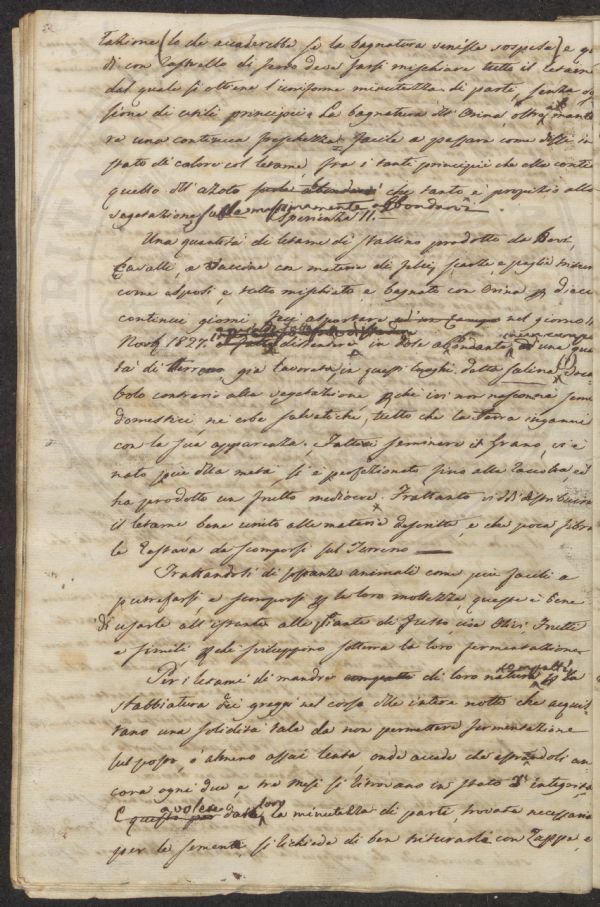 tazione (lo che accaderebbe se la bagnatura venisse sospesa) e
di con rastrello di ferro deve farsi mischiare tutto il letame
dal quale si ottiene l'uniforme minutezza di parti, senza
sione di utili principii. La bagnatura dell'Orina, oltre a mante
re una continua freschezza, facile a passare come dissi in
stato di calore col letame, fra i tanti principii che alla
quello dell'azoto che tanto è propizio alla
vegetazione massimamente abbondarvi
Sperienza II.
Una quantità di letame di stallino prodotto da Bovi,
Cavalli, e Vaccine con materie di felci, e paglia
come esposi, e tutto mischiato e bagnato con Orina p dieci
continui giorni, feci asportare nel giorno
Novb. 1827. e distendere in dose abbondante, ad una
tà di Terreno già lavorata, in questi luoghi detta salina (1) Voca
bolo contrario alla vegetazione p che ivi non nascono semi
domestici, nè erbe salvatiche, tutto che la Terra inganni
con la sua apparenza. Fattavi seminare il Grano, vi è
nato più della metà, si è perfezionato fino alla raccolta, ed
ha prodotto un frutto mediocre. Frattanto
il letame bene unito alle materie descritte, e che poca fibra
le restava da scomporsi sul Terreno —
Trattandosi di sostanze animali come più facili a
putrefarsi e scomporsi p la loro mollezza, queste è bene
di usarle all'istante alle Piante di fusto, sia Olivi, Frutti
e simili, p che sviluppino sotterra la loro fermentazione
Per i letami di mandre compatti di loro natura p la
stabbiatura dei greggi nel corso della intera notte che acquis
tano una solidità tale da non permettere fermentazione
sul posto, o almeno assai lenta, onde accade che
cora ogni due, e tre mesi si ritrovano in stato d'integrità.
E volere dalle loro la minutezza di parte, trovata necessaria
per le sementa, si richiede di ben triturarle con Zappa, e